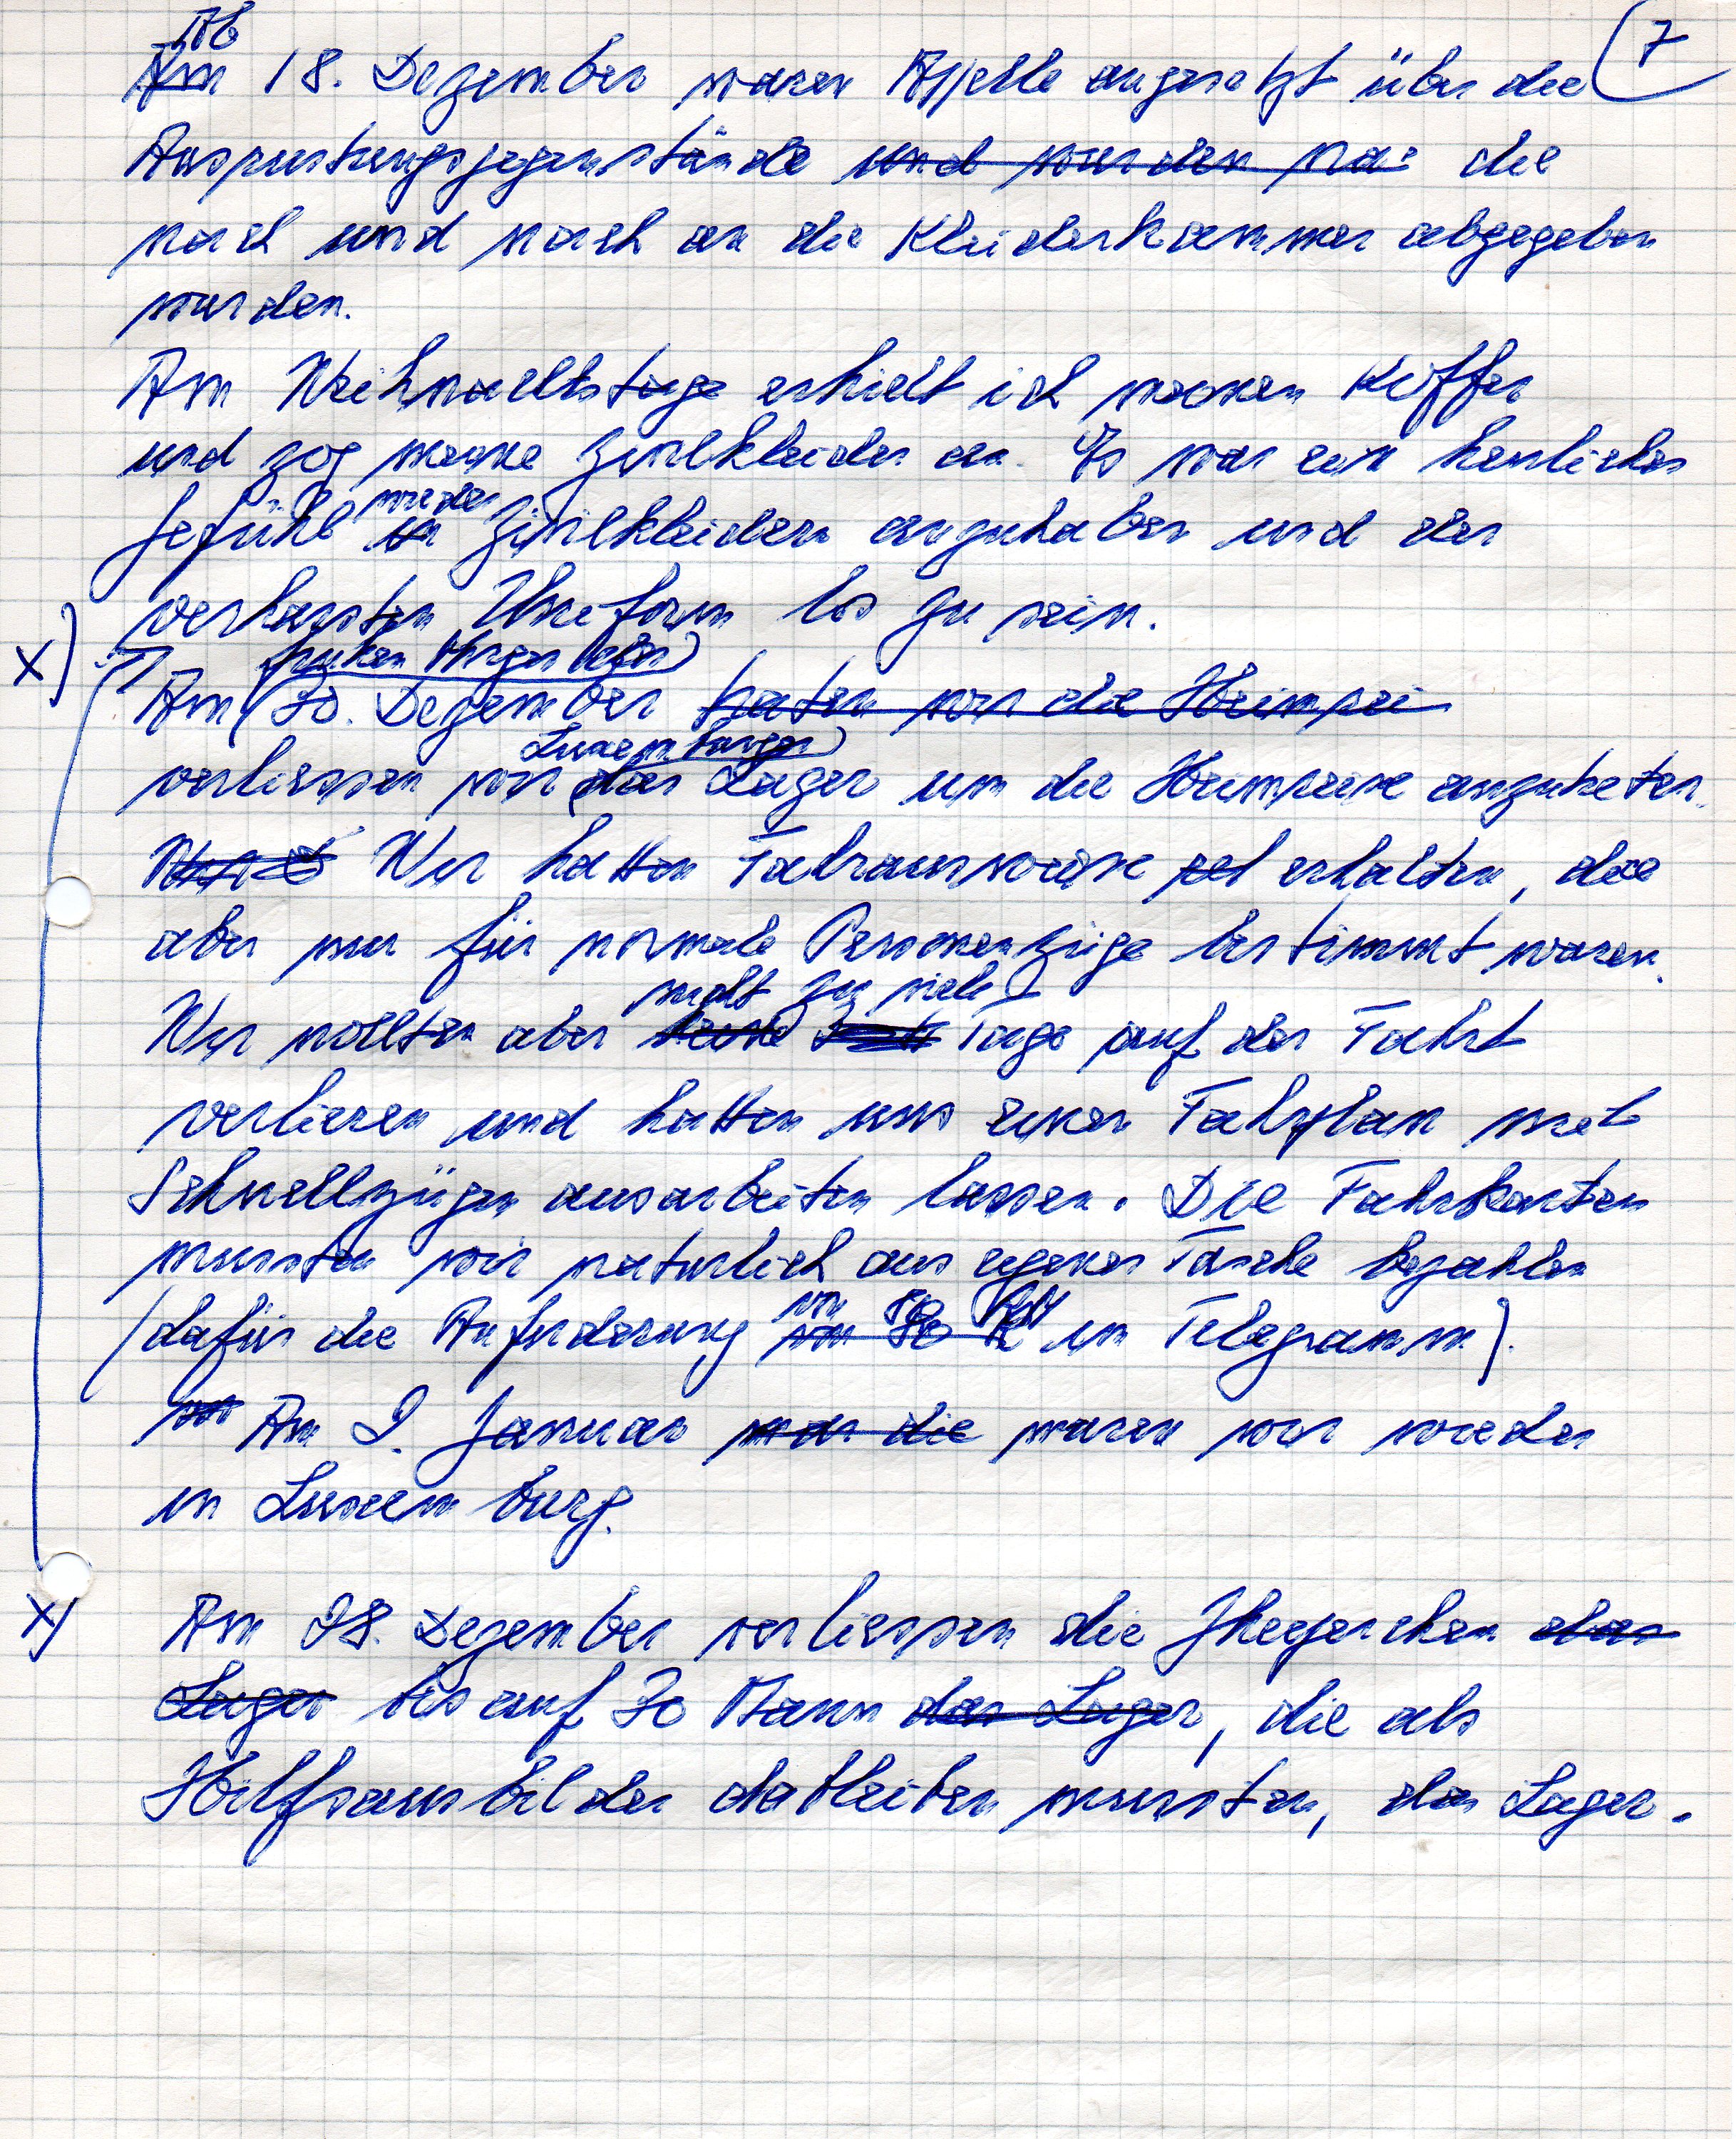 7
Ab
Am 18. Dezember waren Appelle angesetzt über die
Ausrustungsgegenstände und wurden na: die
nach und nach an die Kleiderkammer abgegeben
wurden.
Am Weihnachtstage erhielt ich meinen Koffer
und zog meine Zivilkleider an. Es war ein herrliches
wieder
Gefühl in Zivilkleidern anzuhaben und der
verhassten Uniform los zu sein.
x)
frühen Morgen des
Am 30. Dezember traten wir die Heimrei
Luxemburger
verliessen wir das Lager um die Heimreise anzutreten.
Wir hatten Fahrausweise erhalten, die
aber nur für normale Personenzüge bestimmt waren.
nicht zu viele
Wir wollten aber keine Tage auf der Fahrt
verlieren und hatten uns einen Fahrplan mit
Schnellzügen ausarbeiten lassen. Die Fahrkarten
mussten wir naturlich aus eigener Tasche bezahlen
von 80 RM
(dafür die Anforderung von 80 R im Telegramm).
Am 2. Januar war die waren wir wieder
in Luxemburg.
x)
Am 28. Dezember verliessen die das
Lager bis auf 30 Mann das Lager, die als
Hilfsausbilder dableiben mussten, das Lager.